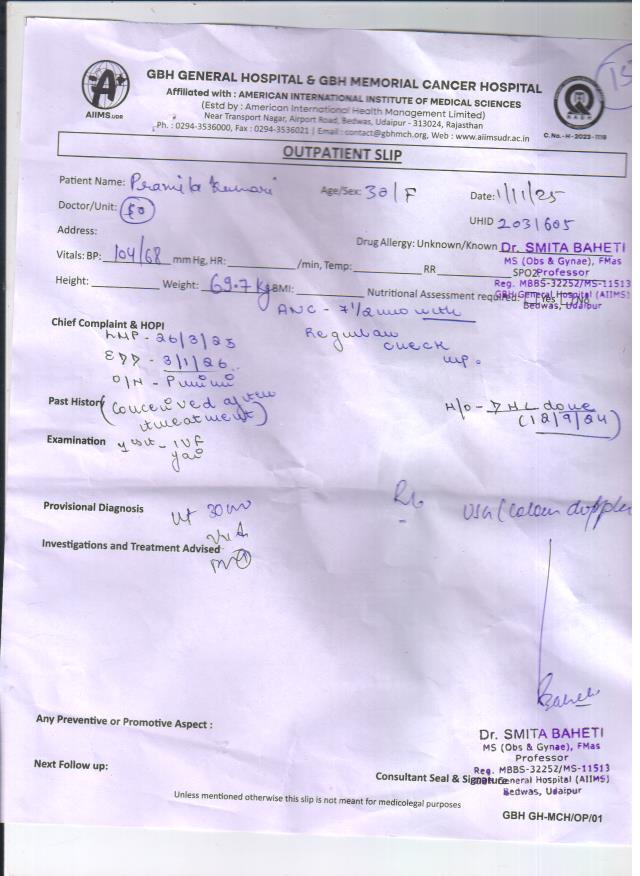 AIIMS.UDR
GBH GENERAL HOSPITAL & GBH MEMORIAL CANCER HOSPITAL
Affiliated with : AMERICAN INTERNATIONAL INSTITUTE OF MEDICAL SCIENCES
(Estd by : American International Health Management Limited)
Near Transport Nagar, Airport Road, Bedwas, Udaipur - 313024, Rajasthan
Ph. : 0294-3536000, Fax : 0294-3536021 | Email : contact@gbhmch.org, Web : www.aiimsudr.ac.in
C.No.-H-2023-1119
OUTPATIENT SLIP
Patient Name: Pramila Kumari Age/Sex: 30/F Date: 1/11/25
Doctor/Unit: UHID 2031605
Address:
Drug Allergy: Unknown/Known Dr. SMITA BAHETI
MS (Obs & Gynae), FMas
Vitals: BP: 104/68 mm Hg, HR: /min, Temp: RR SPO2 Professor
Reg. MBBS-32252/MS-11513
Height: Weight: 69.7 kg BMI: Nutritional Assessment required: Yes No
GBH General Hospital (AIIMS)
Bedwas, Udaipur
ANC - 7 1/2 mo with
Chief Complaint & HOPI Regular
LMP - 26/3/25 check
EDD - 3/1/26 up.
O/H - Primi
Past History (conceived after H/O - DHL done
treatment) (18/9/24)
Examination
Provisional Diagnosis
USG (colour doppler
Investigations and Treatment Advised
Baheti
Any Preventive or Promotive Aspect :
Dr. SMITA BAHETI
MS (Obs & Gynae), FMas
Professor
Next Follow up:
Reg. MBBS-32252/MS-11513
Consultant Seal & Signature General Hospital (AIIMS)
Bedwas, Udaipur
Unless mentioned otherwise this slip is not meant for medicolegal purposes
GBH GH-MCH/OP/01